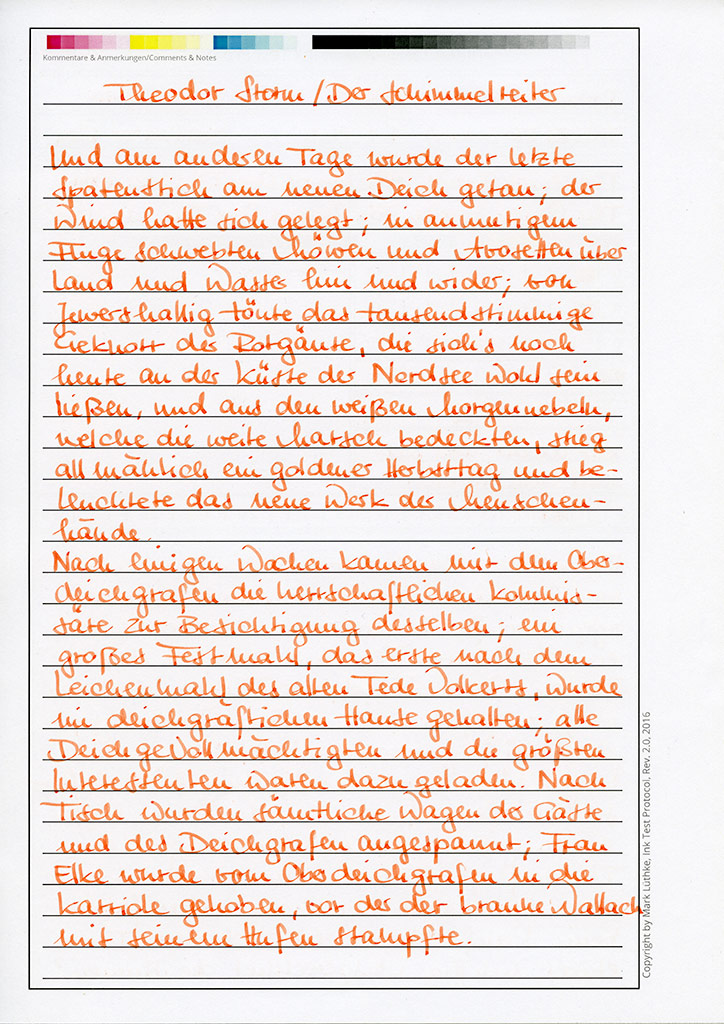 Kommentare & Anmerkungen/Comments & Notes
Theodor Storm / Der Schimmelreiter
Und am anderen Tage wurde der letzte
Spatenstich am neuen Deich getan; der
Wind hatte sich gelegt; in anmutigem
Fluge schwebten Möwen und Avosetten über
Land und Wasser hin und wider; von
Jevershallig tönte das tausendstimmige
Geknorr der Rotgänse, die sich's noch
heute an der Küste der Nordsee wohl sein
ließen, und aus den weißen Morgennebeln,
welche die weite Marsch bedeckten, stieg
allmählich ein goldener Herbsttag und be-
leuchtete das neue Werk der Menschen-
hände.
Nach einigen Wochen kamen mit dem Ober-
deichgrafen die herrschaftlichen Kommis-
säre zur Besichtigung desselben; ein
großes Festmahl, das erste nach dem
Leichenmahl des alten Tede Volkerts, wurde
im deichgräflichen Hause gehalten; alle
Deichgevollmächtigten und die größten
Interessenten waren dazu geladen. Nach
Tisch wurden sämtliche Wagen der Gäste
und des Deichgrafen angespannt; Frau
Elke wurde vom Oberdeichgrafen in die
Karriole gehoben, vor der der braune Wallach
mit seinem Hufen stampfte.
Copyright by Mark Lüthke, Ink Test Protocol, Rev. 2.0, 2016